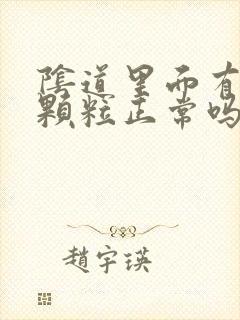 陰道里面有
顆粒正常吗
趙宇瑛